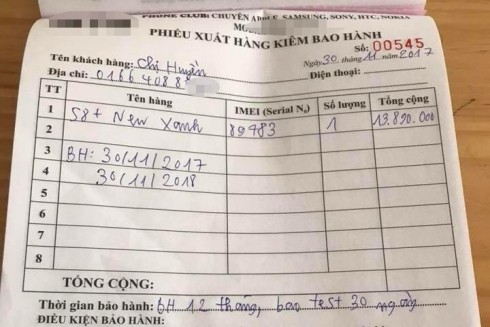 PHONE CLUB: CHUYÊN APPLE, SAMSUNG, SONY, HTC, NOKIA
PHIẾU XUẤT HÀNG KIÊM BẢO HÀNH
Số: 00545
Tên khách hàng: Chị Huyền
Ngày 30 tháng 11 năm 2017
Địa chỉ: 0166 408 8
Điện thoại:
TT Tên hàng IMEI (Serial No) Số lượng Tổng cộng
1 S8+ New Xanh 89483 1 13.890.000
2
3 BH: 30/11/2017
4 30/11/2018
5
6
7
8
TỔNG CỘNG:
Thời gian bảo hành: BH 12 tháng, bao test 30 ngày
ĐIỀU KIỆN BẢO HÀNH: